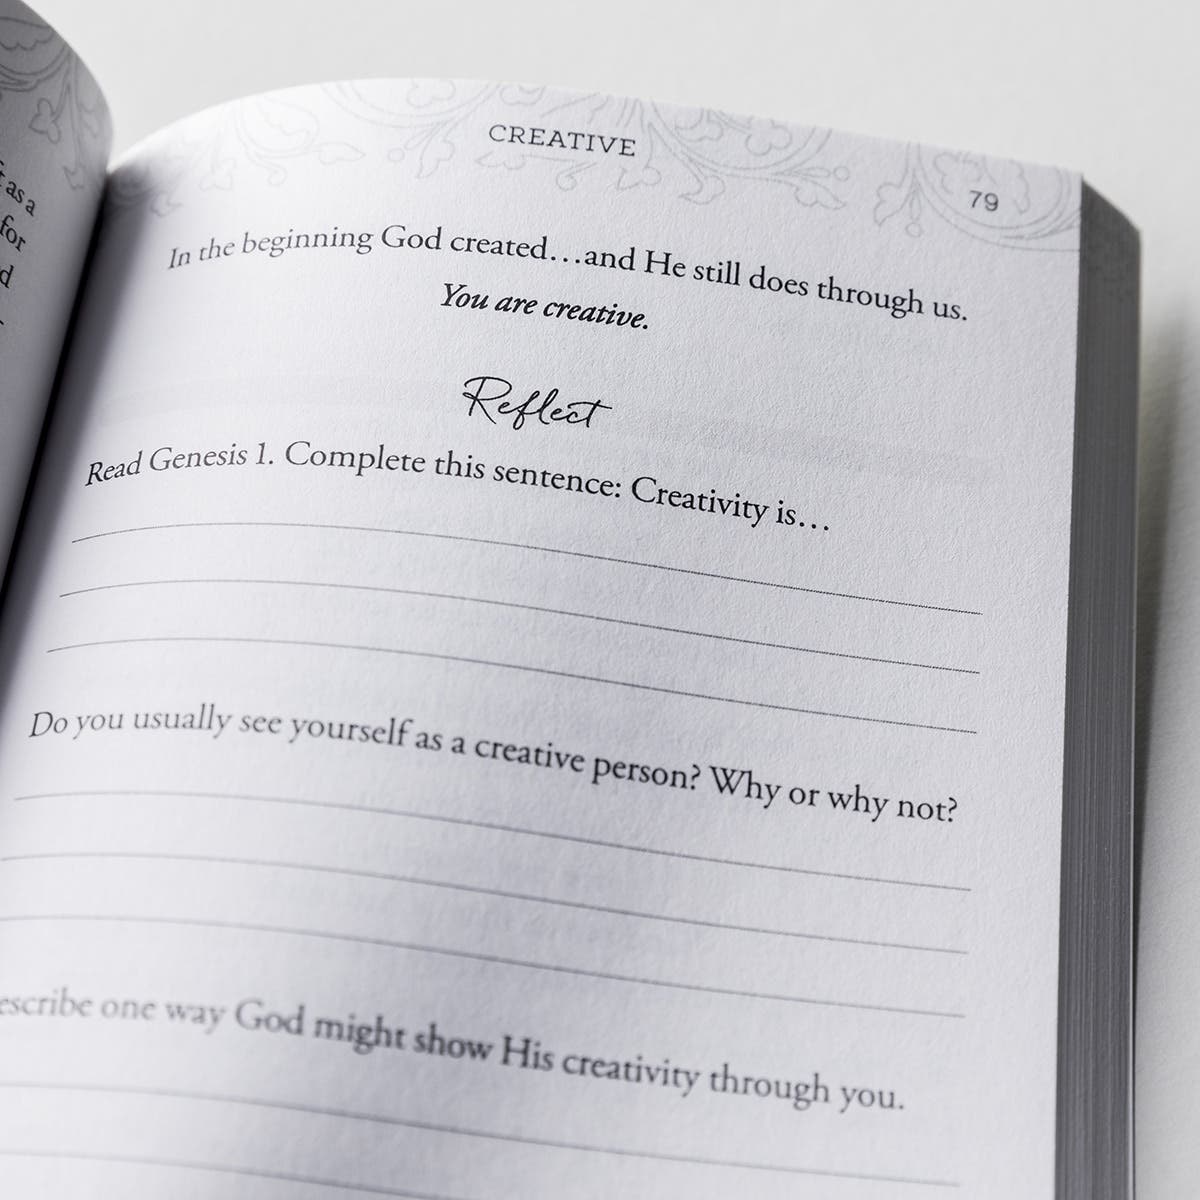 as a
for
d
CREATIVE
79
In the beginning God created...and He still does through us.
You are creative.
Reflect
Read Genesis 1. Complete this sentence: Creativity is...
Do you usually see yourself as a creative person? Why or why not?
escribe one way God might show His creativity through you.